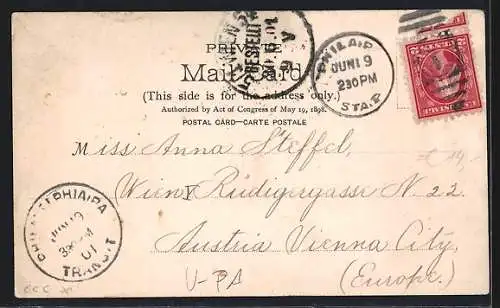 PRIVATE
Mailing Card
(This side is for the address only.)
Authorized by Act of Congress of May 19, 1898.
POSTAL CARD—CARTE POSTALE
PHILA.P
JUN 19
230PM
STA.P
Miss Anna Steffel,
Wien V Rüdigergasse N. 22.
Austria Vienna City.
(Europe.)
PHILADELPHIA.PA
JUN 19
01
TRANSIT
U-PA